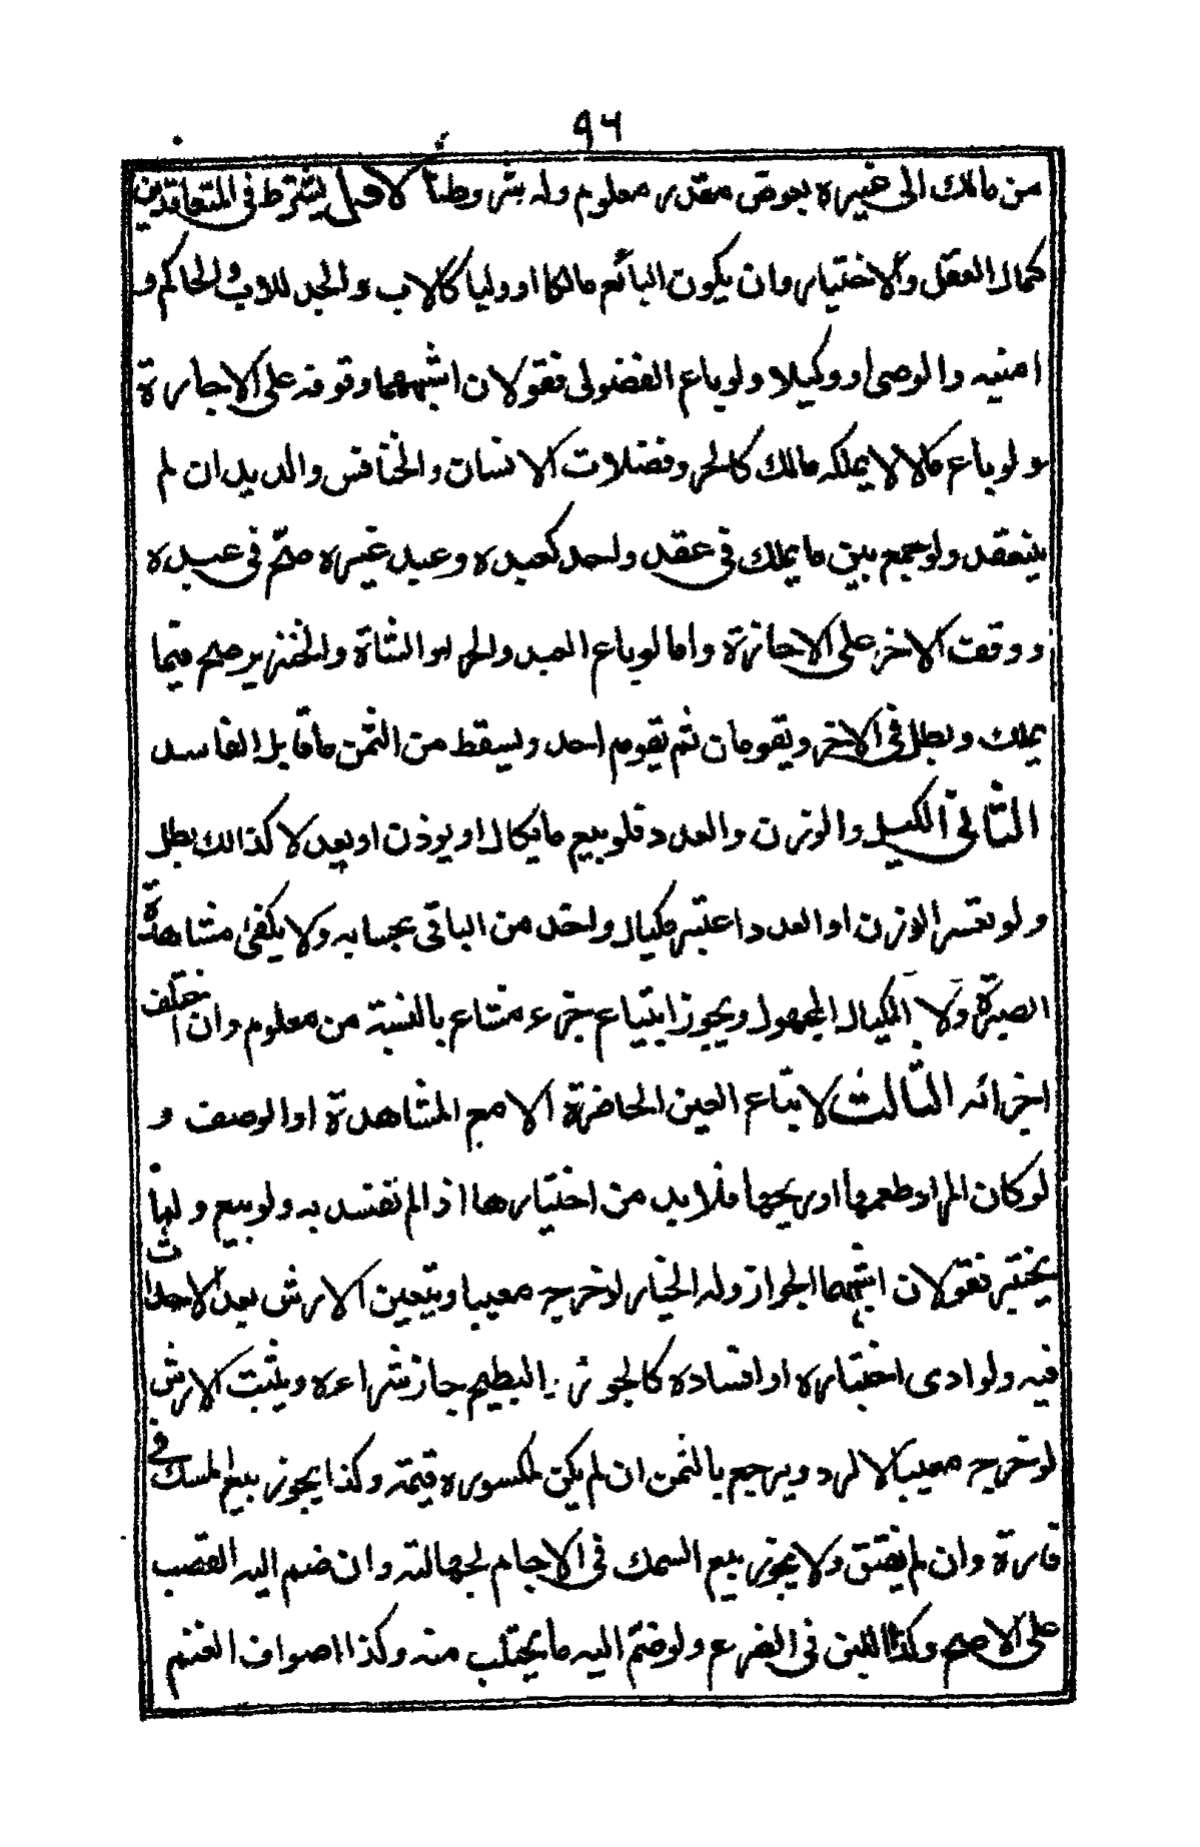 ٩٦
من مالك الى غيره بعوض مقدر معلوم وله شروط الاول يشترط فى المتعاقدين
كمال العقل والاختيار وان يكون البائع مالكا او وليا كالاب والجد للاب والحاكم و
امنيه والوصى او وكيلا ولو باع الفضولى فقولان اشبههما وقوفه على الاجازة
ولو باع مالا يملكه مالك كالحر وفضلات الانسان والخنافس والديدان لم
ينعقد ولو جمع بين ما يملك فى عقد واحد كعبده وعبد غيره صح فى عبده
ووقف الاخر على الاجازة واما لو باع العبد والحر او الشاة والخنزير صح فيما
يملك وبطل فى الاخر ويقومان ثم يقوم احد ويسقط من الثمن ما قابل الفاسد
الثانى الكيل والوزن والعدد فلو بيع ما يكال او يوزن او يعد لا كذالك بطل
ولو تعسر الوزن او العدد اعتبر مكيال واخذ من الباقى بحسابه ولا يكفى مشاهدة
الصبرة ولا المكيال المجهول ويجوز ابتياع جزء مشاع بالنسبة من معلوم وان اختلف
اجزائه الثالث لا يتاع العين الحاضرة الا مع المشاهدة او الوصف و
لو كان المراد طعمها او ريحها فلا بد من اختيارها اذا لم تفسد به ولو بيع ولما
يختبر فقولان اشبههما الجواز وله الخيار لو خرج معيبا ويتعين الارش بعد الاحداث
فيه ولو ادى اختباره او افساده كالجوز و البطيخ جاز شراءه ويثبت الارش
لو خرج معيبا لا الرد ويرجع بالثمن ان لم يكن لمكسوره قيمة وكذا يجوز بيع المسك فى
فارة وان لم يفتق ولا يجوز بيع السمك فى الاجام لجهالته وان ضم اليه القصب
على الاصح وكذا اللبن فى الضرع ولو ضم اليه ما يحتلب منه وكذا اصواف الغنم